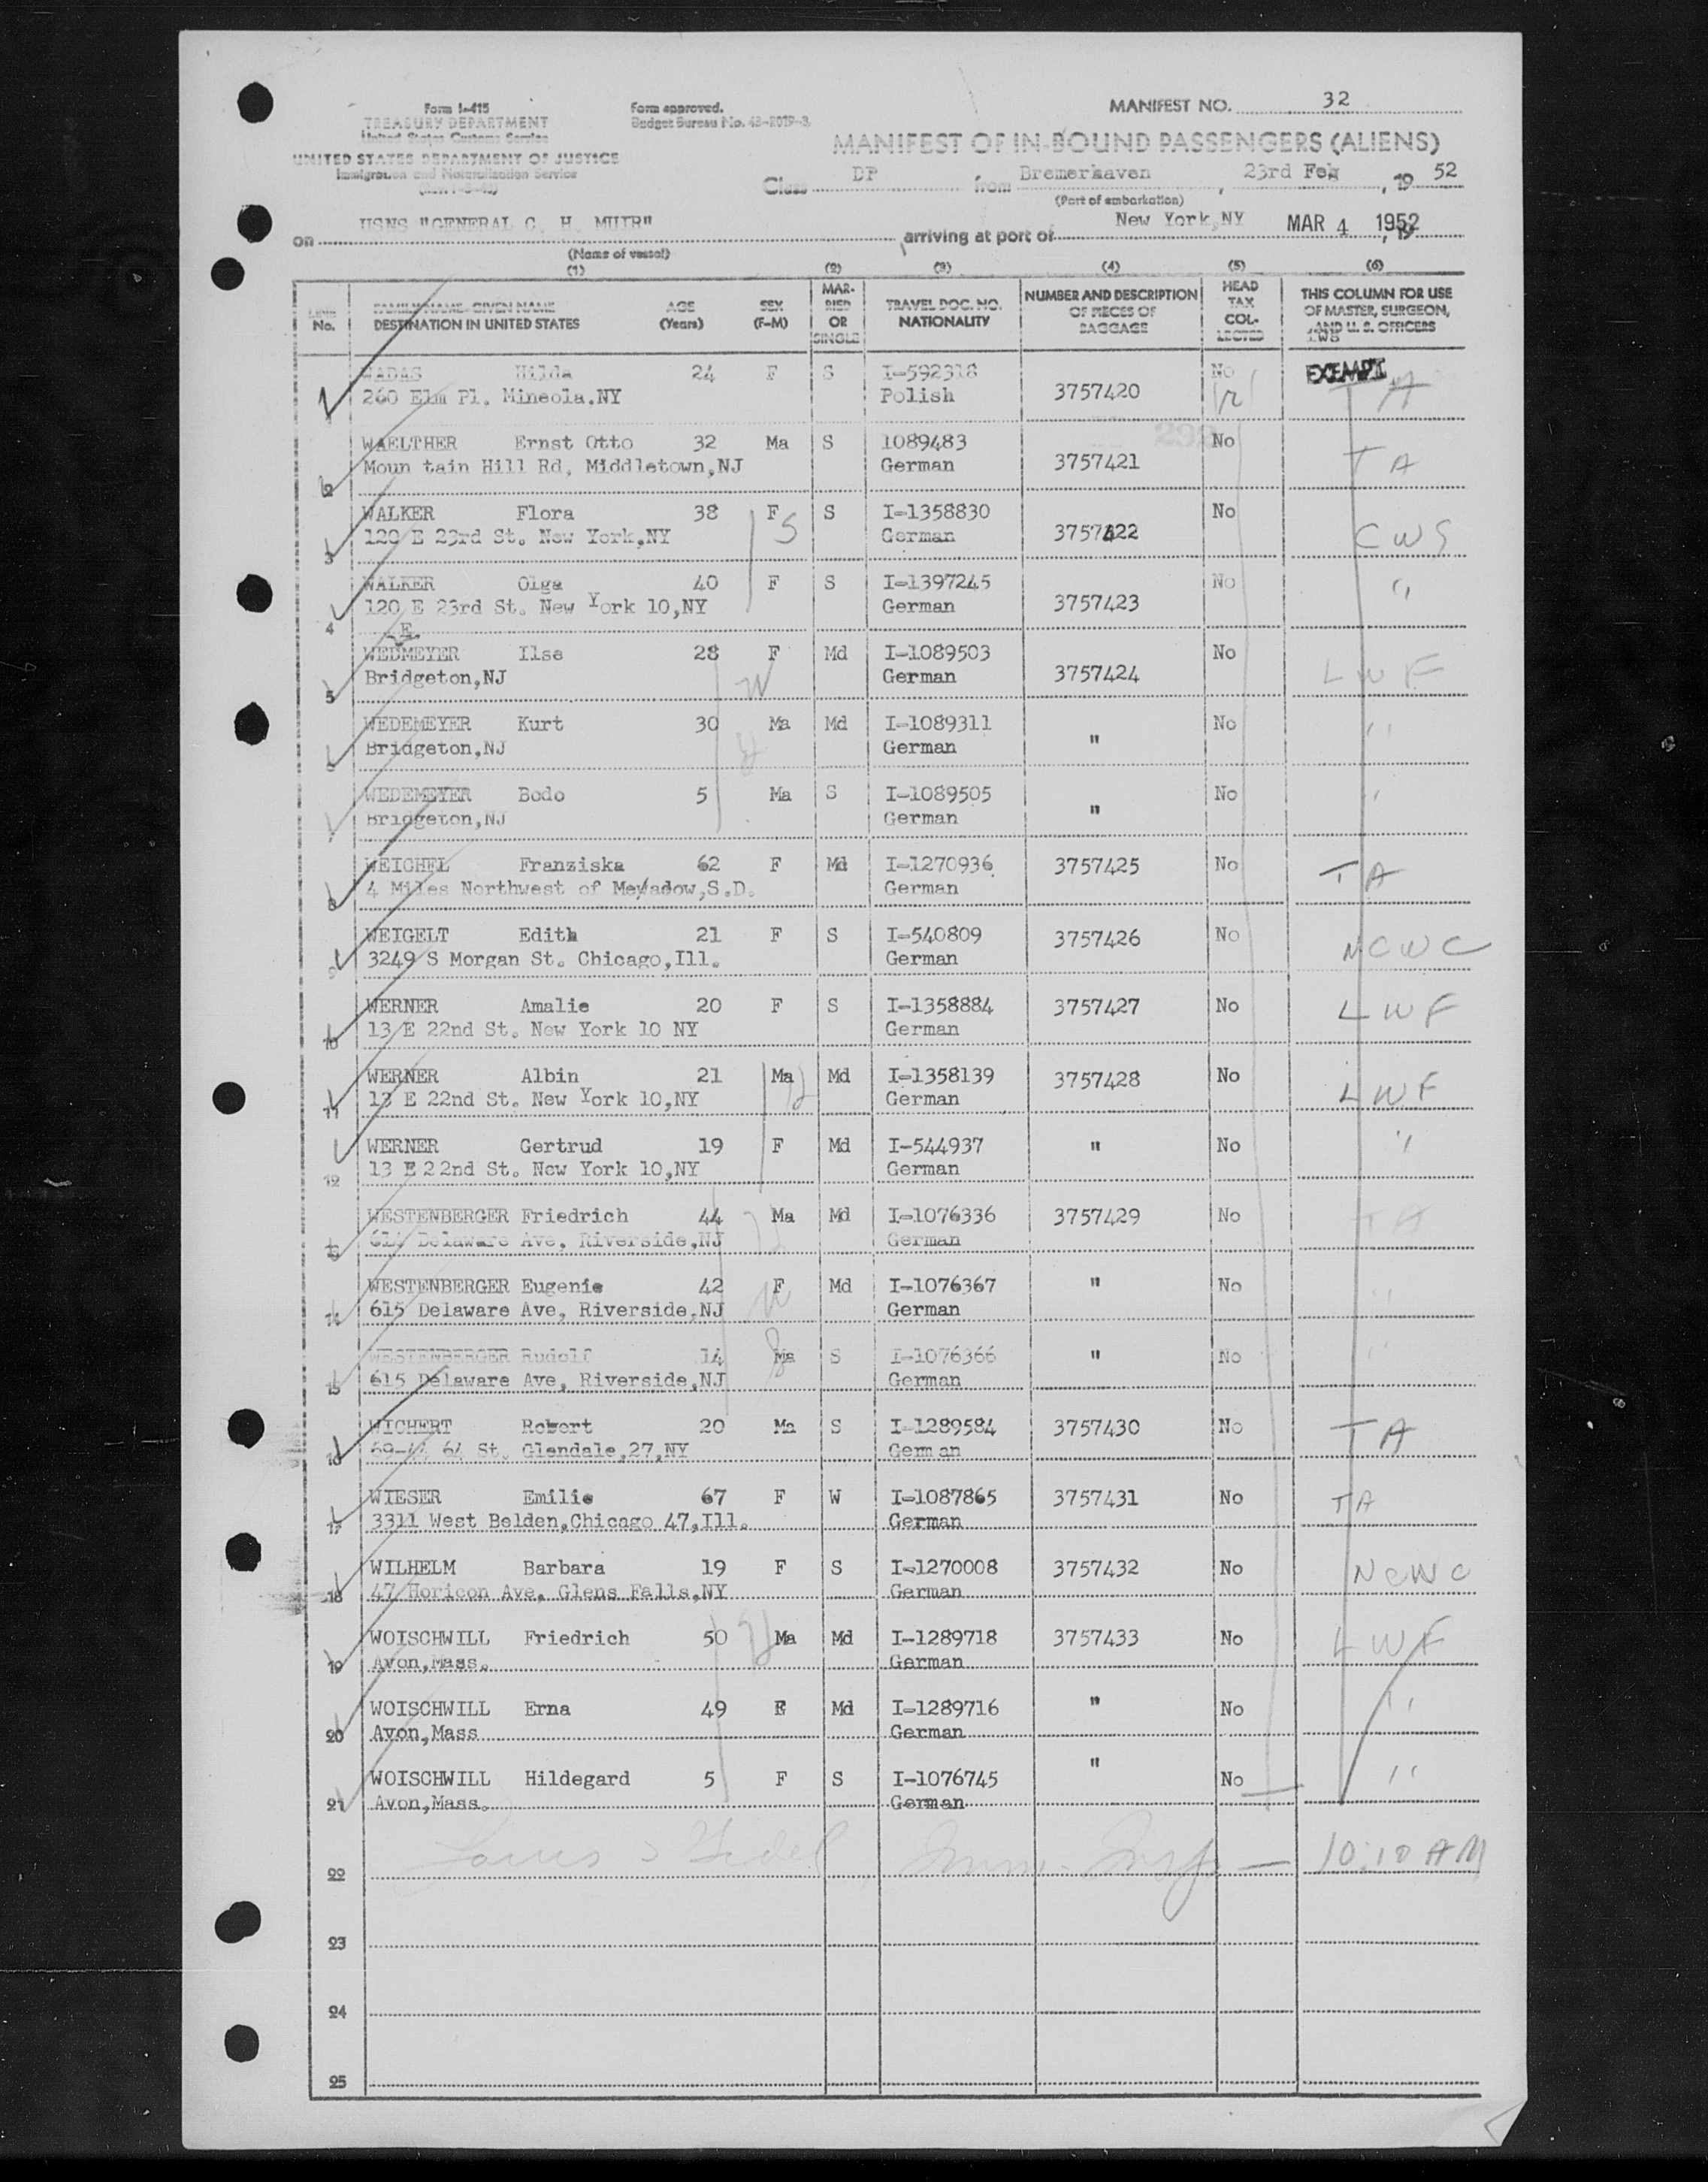 Form I-415
TREASURY DEPARTMENT
United States Customs Service
UNITED STATES DEPARTMENT OF JUSTICE
Immigration and Naturalization Service
Form approved.
Budget Bureau No. 43-R019-3.
MANIFEST NO. 32
MANIFEST OF IN-BOUND PASSENGERS (ALIENS)
Class DP from Bremerhaven, 23rd Feb, 19 52
(Port of embarkation)
on USNS "GENERAL C. H. MUIR" arriving at port of New York,NY MAR 4 1952
(Name of vessel)
(1) (2) (3) (4) (5) (6)
LINE No. FAMILY NAME-GIVEN NAME DESTINATION IN UNITED STATES AGE (Years) SEX (F-M) MARRIED OR SINGLE TRAVEL DOC. NO. NATIONALITY NUMBER AND DESCRIPTION OF PIECES OF BAGGAGE HEAD TAX COLLECTED THIS COLUMN FOR USE OF MASTER, SURGEON, AND U. S. OFFICERS
WADAS Hilda 24 F S I-592318 No EXEMPT
1 260 Elm Pl. Mineola.NY Polish 3757420 T A
WAELTHER Ernst Otto 32 Ma S 1089483 No
2 Moun tain Hill Rd, Middletown,NJ German 3757421 T A
WALKER Flora 38 F S I-1358830 No
3 120 E 23rd St. New York,NY German 3757422 CWS
WALKER Olga 40 F S I-1397245 No "
4 120 E 23rd St. New York 10,NY German 3757423
E
WEDMEYER Ilse 28 F Md I-1089503 No
5 Bridgeton,NJ German 3757424 LWF
WEDEMEYER Kurt 30 Ma Md I-1089311 No "
6 Bridgeton,NJ German "
WEDEMEYER Bodo 5 Ma S I-1089505 No "
7 Bridgeton,NJ German "
WEICHEL Franziska 62 F Md I-1270936 3757425 No T A
8 4 Miles Northwest of Meadow,S.D. German
WEIGELT Edith 21 F S I-540809 3757426 No NCWC
9 3249 S Morgan St. Chicago,Ill. German
WERNER Amalie 20 F S I-1358884 3757427 No LWF
10 13 E 22nd St. New York 10 NY German
WERNER Albin 21 Ma Md I-1358139 3757428 No LWF
11 13 E 22nd St. New York 10,NY German
WERNER Gertrud 19 F Md I-544937 " No "
12 13 E 22nd St. New York 10,NY German
WESTENBERGER Friedrich 44 Ma Md I-1076336 3757429 No TA
13 Delaware Ave, Riverside,NJ German
WESTENBERGER Eugenie 42 F Md I-1076367 " No "
14 615 Delaware Ave, Riverside,NJ German
WESTENBERGER Rudolf 14 Ma S I-1076366 " No "
15 615 Delaware Ave, Riverside,NJ German
WICHERT Robert 20 Ma S I-1289584 3757430 No T A
16 64 St. Glendale,27,NY German
WIESER Emilie 67 F W I-1087865 3757431 No TA
17 3311 West Belden,Chicago 47,Ill. German
WILHELM Barbara 19 F S I-1270008 3757432 No NCWC
18 47 Horicon Ave, Glens Falls,NY German
WOISCHWILL Friedrich 50 Ma Md I-1289718 3757433 No LWF
19 Avon,Mass. German
WOISCHWILL Erna 49 F Md I-1289716 " No "
20 Avon,Mass German
WOISCHWILL Hildegard 5 F S I-1076745 " No "
21 Avon,Mass. German
22 Louis Imm. Insp — 10:10 AM
23
24
25